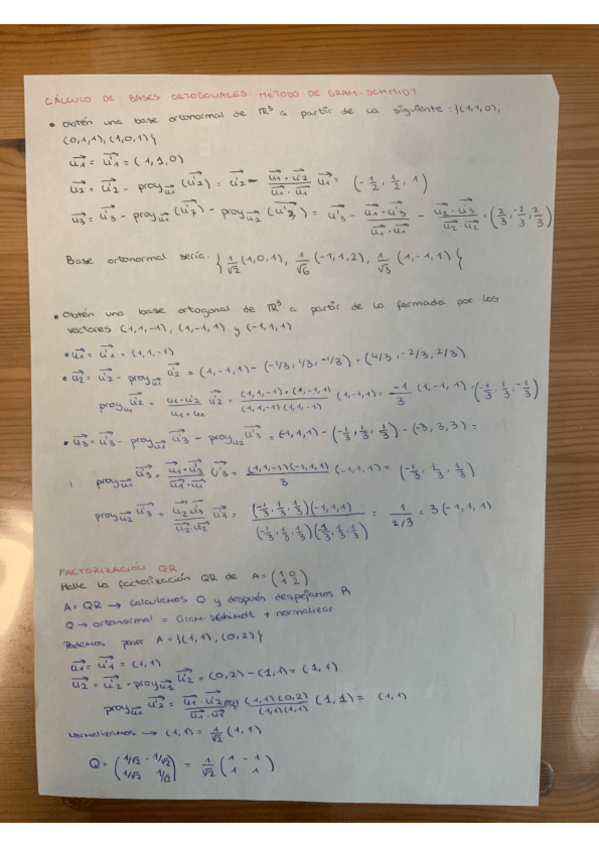 CÁLCULO DE BASES ORTOGONALES: MÉTODO DE GRAM-SCHMIDT
• Obtén una base ortonormal de ℝ³ a partir de la siguiente: }(1,1,0),
(0,1,1), (1,0,1){
u1 = u'1 = (1,1,0)
u2 = u'2 - proy u1 (u'2) = u'2 - (u1·u'2)/(u1·u1) u1 = (-1/2, 1/2, 1)
u3 = u'3 - proy u1 (u'3) - proy u2 (u'3) = u'3 - (u1·u'3)/(u1·u1) - (u2·u'3)/(u2·u2) = (2/3, -2/3, 2/3)
Base ortonormal sería: } 1/√2 (1,0,1), 1/√6 (-1,1,2), 1/√3 (1,-1,1) {
• Obtén una base ortogonal de ℝ³ a partir de la formada por los
vectores (1,1,-1), (1,-1,1) y (-1,1,1)
• u1 = u'1 = (1,1,-1)
• u2 = u'2 - proy u1 u'2 = (1,-1,1) - (-1/3, 1/3, -1/3) = (4/3, -2/3, 2/3)
proy u1 u'2 = (u1·u'2)/(u1·u1) u'2 = ((1,1,-1)·(1,-1,1))/((1,1,-1)(1,1,-1)) (1,-1,1) = -1/3 (1,-1,1) = (-1/3, 1/3, -1/3)
• u3 = u'3 - proy u1 u'3 - proy u2 u'3 = (-1,1,1) - (-1/3, 1/3, 1/3) - (-3, 3, 3) =
proy u1 u'3 = (u1·u'3)/(u1·u1) u'3 = ((1,1,-1)(-1,1,1))/3 (-1,1,1) = (-1/3, 1/3, 1/3)
proy u2 u'3 = (u2·u'3)/(u2·u2) u'3 = ((-1/3, 1/3, 1/3)(-1,1,1))/((-1/3, 1/3, 1/3)(-1/3, 1/3, 1/3)) = 1/(2/3) = 3(-1,1,1)
FACTORIZACIÓN QR
Halle la factorización QR de A = (1 0
1 2)
A = QR → calculamos Q y después despejamos R
Q → ortonormal = Gram-Schmidt + normalizar
Podemos poner A = }(1,1), (0,2){
u1 = u'1 = (1,1)
u2 = u'2 - proy u2 u'2 = (0,2) - (1,1) = (1,1)
proy u1 u'2 = (u1·u'2)/(u1·u1) = ((1,1)(0,2))/((1,1)(1,1)) (1,1) = (1,1)
Normalizamos → (1,1) = 1/√2 (1,1)
Q = (1/√2 -1/√2
1/√2 1/√2) = 1/√2 (1 -1
1 1)